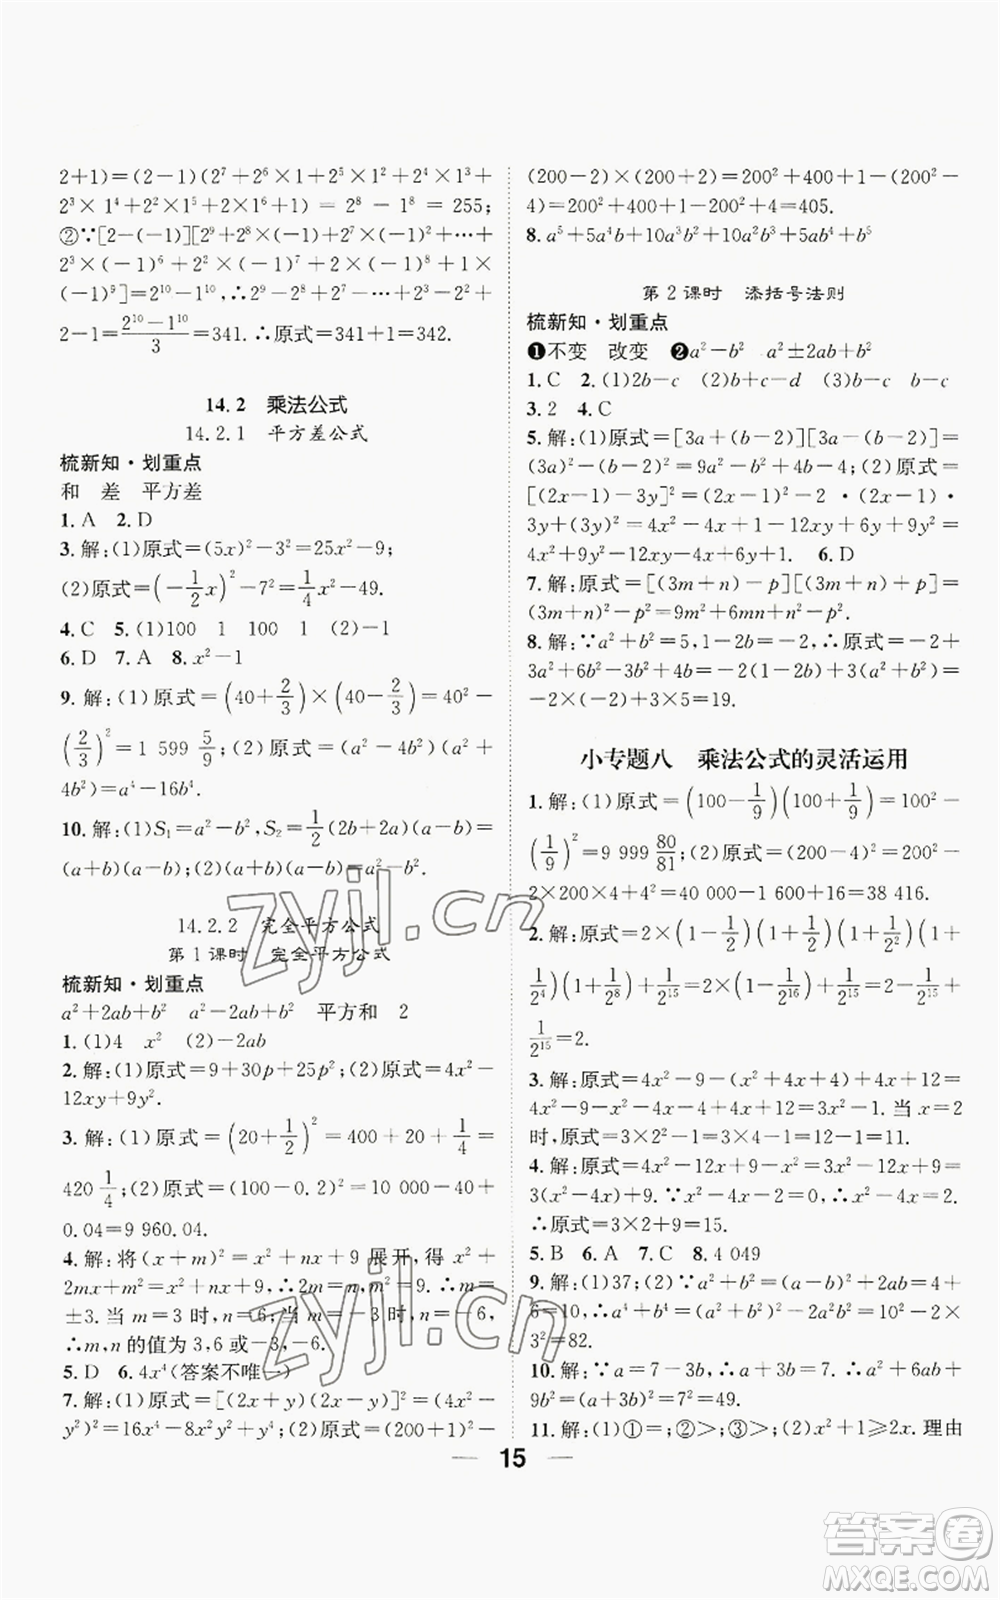 2+1)=(2-1)(2⁷+2⁶×1+2⁵×1²+2⁴×1³+
2³×1⁴+2²×1⁵+2×1⁶+1)=2⁸-1⁸=255;
②∵[2-(-1)][2⁹+2⁸×(-1)+2⁷×(-1)²+⋯+
2³×(-1)⁶+2²×(-1)⁷+2×(-1)⁸+1×
(-1)⁹]=2¹⁰-1¹⁰,∴2⁹-2⁸+2⁷-⋯+2³-2²+
2-1=(2¹⁰-1¹⁰)/3=341.∴原式=341+1=342.
14.2 乘法公式
14.2.1 平方差公式
梳新知·划重点
和 差 平方差
1. A 2. D
3. 解:(1)原式=(5x)²-3²=25x²-9;
(2)原式=(-1/2x)²-7²=1/4x²-49.
4. C 5. (1)100 1 100 1 (2)-1
6. D 7. A 8. x²-1
9. 解:(1)原式=(40+2/3)×(40-2/3)=40²-
(2/3)²=1 599 5/9;(2)原式=(a²-4b²)(a²+
4b²)=a⁴-16b⁴.
10. 解:(1)S₁=a²-b²,S₂=1/2(2b+2a)(a-b)=
(a+b)(a-b);(2)(a+b)(a-b)=a²-b².
14.2.2 完全平方公式
第1课时 完全平方公式
梳新知·划重点
a²+2ab+b² a²-2ab+b² 平方和 2
1. (1)4 x² (2)-2ab
2. 解:(1)原式=9+30p+25p²;(2)原式=4x²-
12xy+9y².
3. 解:(1)原式=(20+1/2)²=400+20+1/4=
420 1/4;(2)原式=(100-0.2)²=10 000-40+
0.04=9 960.04.
4. 解:将(x+m)²=x²+nx+9展开,得 x²+
2mx+m²=x²+nx+9,∴2m=n,m²=9.∴m=
±3.当 m=3 时,n=6;当 m=-3 时,n=-6,
∴m,n 的值为 3,6 或-3,-6.
5. D 6. 4x⁴(答案不唯一)
7. 解:(1)原式=[(2x+y)(2x-y)]²=(4x²-
y²)²=16x⁴-8x²y²+y⁴;(2)原式=(200+1)²-
(200-2)×(200+2)=200²+400+1-(200²-
4)=200²+400+1-200²+4=405.
8. a⁵+5a⁴b+10a³b²+10a²b³+5ab⁴+b⁵
第2课时 添括号法则
梳新知·划重点
❶不变 改变 ❷a²-b² a²±2ab+b²
1. C 2. (1)2b-c (2)b+c-d (3)b-c b-c
3. 2 4. C
5. 解:(1)原式=[3a+(b-2)][3a-(b-2)]=
(3a)²-(b-2)²=9a²-b²+4b-4;(2)原式=
[(2x-1)-3y]²=(2x-1)²-2·(2x-1)·
3y+(3y)²=4x²-4x+1-12xy+6y+9y²=
4x²+9y²-12xy-4x+6y+1. 6. D
7. 解:原式=[(3m+n)-p][(3m+n)+p]=
(3m+n)²-p²=9m²+6mn+n²-p².
8. 解:∵a²+b²=5,1-2b=-2,∴原式=-2+
3a²+6b²-3b²+4b=-2(1-2b)+3(a²+b²)=
-2×(-2)+3×5=19.
小专题八 乘法公式的灵活运用
1. 解:(1)原式=(100-1/9)(100+1/9)=100²-
(1/9)²=9 999 80/81;(2)原式=(200-4)²=200²-
2×200×4+4²=40 000-1 600+16=38 416.
2. 解:原式=2×(1-1/2)(1+1/2)(1+1/2²)(1+
1/2⁴)(1+1/2⁸)+1/2¹⁵=2×(1-1/2¹⁶)+1/2¹⁵=2-1/2¹⁵+
1/2¹⁵=2.
3. 解:原式=4x²-9-(x²+4x+4)+4x+12=
4x²-9-x²-4x-4+4x+12=3x²-1.当 x=2
时,原式=3×2²-1=3×4-1=12-1=11.
4. 解:原式=4x²-12x+9-x²+y²-y²=
3(x²-4x)+9.∵x²-4x-2=0,∴x²-4x=2.
∴原式=3×2+9=15.
5. B 6. A 7. C 8. 4 049
9. 解:(1)37;(2)∵a²+b²=(a-b)²+2ab=4+
6=10,∴a⁴+b⁴=(a²+b²)²-2a²b²=10²-2×
3²=82.
10. 解:∵a=7-3b,∴a+3b=7.∴a²+6ab+
9b²=(a+3b)²=7²=49.
11. 解:(1)①= ②> ③>;(2)x²+1≥2x.理由
15
zyjl.cn
zyjl.cn
答案卷
MXQE.COM